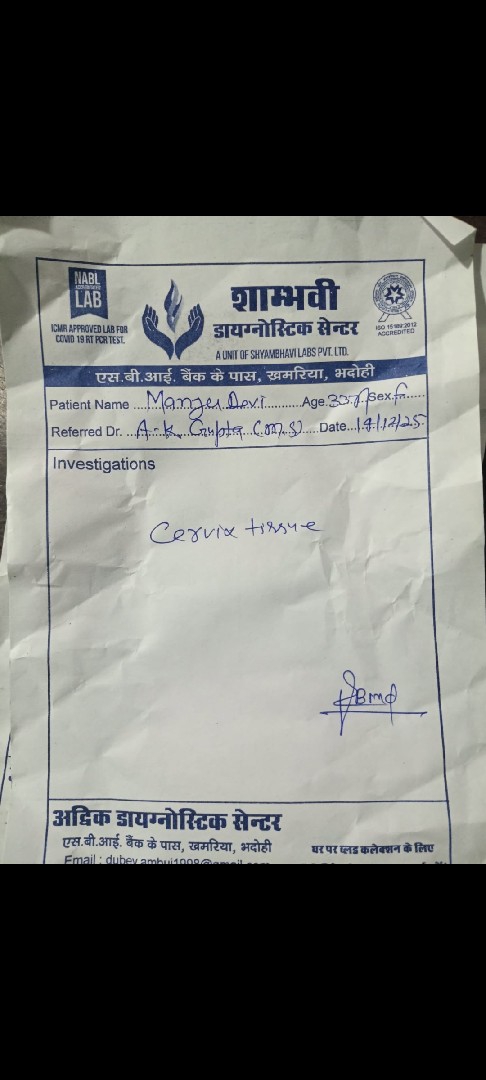 NABL
ACCREDITED
LAB
ICMR APPROVED LAB FOR
COVID 19 RT PCR TEST.
शाम्भवी
डायग्नोस्टिक सेन्टर
A UNIT OF SHYAMBHAVI LABS PVT. LTD.
ISO 15189:2012
ACCREDITED
एस.बी.आई. बैंक के पास, खमरिया, भदोही
Patient Name ....Manju Devi.........Age.30.Y.Sex.f.....
Referred Dr. ..A.K. Gupta (M.S)....Date...19/12/25.
Investigations
Cervix tissue
अद्विक डायग्नोस्टिक सेन्टर
एस.बी.आई. बैंक के पास, खमरिया, भदोही
घर पर ब्लड कलेक्शन के लिए
Email :